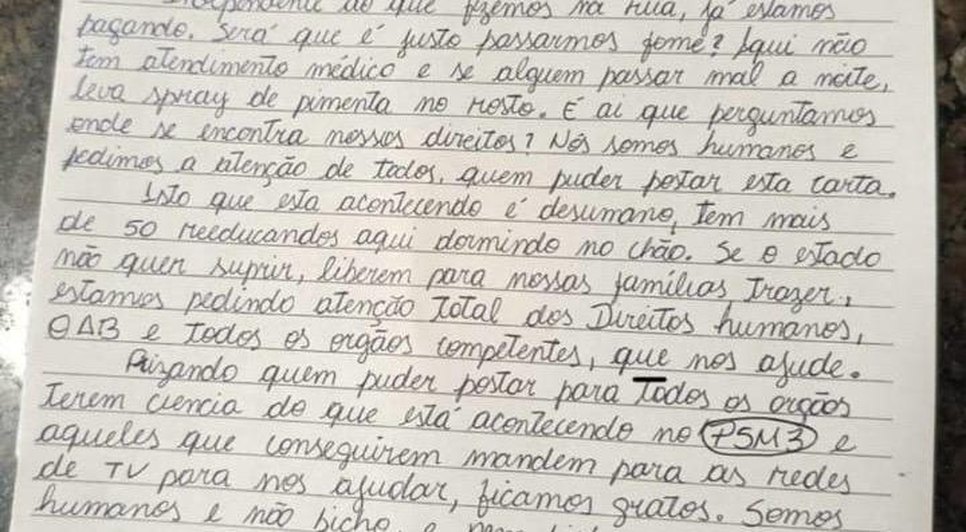 Independente do que fizemos na rua, já estamos
pagando. Será que é justo passarmos fome? Aqui não
tem atendimento médico e se alguem passar mal a noite,
leva spray de pimenta no rosto. É ai que perguntamos
onde se encontra nossos direitos? Nós somos humanos e
pedimos a atenção de todos, quem puder postar esta carta.
Isto que esta acontecendo é desumano, tem mais
de 50 reeducandos aqui dormindo no chão. Se o estado
não quer suprir, liberem para nossas famílias trazer,
estamos pedindo atenção total dos Direitos humanos,
OAB e todos os orgãos competentes, que nos ajude.
Prizando quem puder postar para todos os orgãos
terem ciencia do que está acontecendo no PSM3 e
aqueles que conseguirem mandem para as redes
de TV para nos ajudar, ficamos gratos. Somos
humanos e não bicho, e